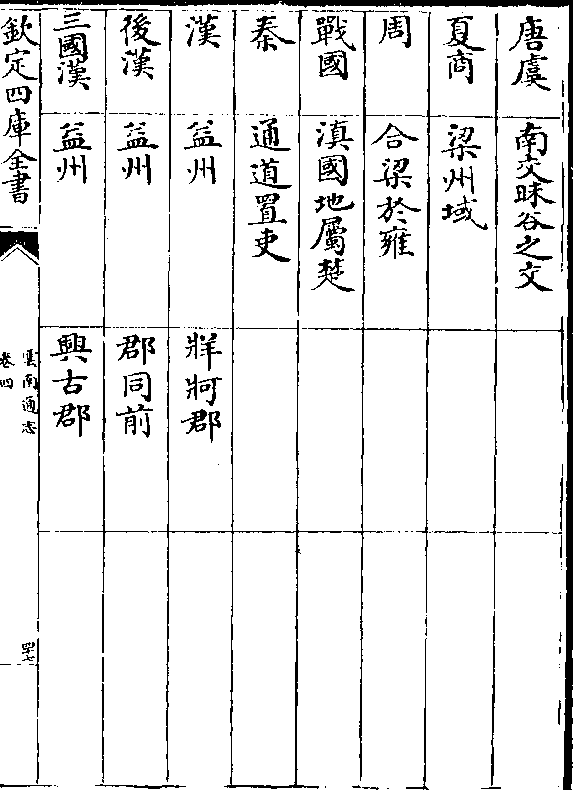 唐虞 南交昧谷之交
夏商 梁州域
周 合梁於雍
戰國 滇國地屬楚
秦 通道置吏
漢 益州 牂牁郡
後漢 益州 郡同前
三國漢 益州 興古郡
欽定四庫全書
雲南通志
卷四
四十七